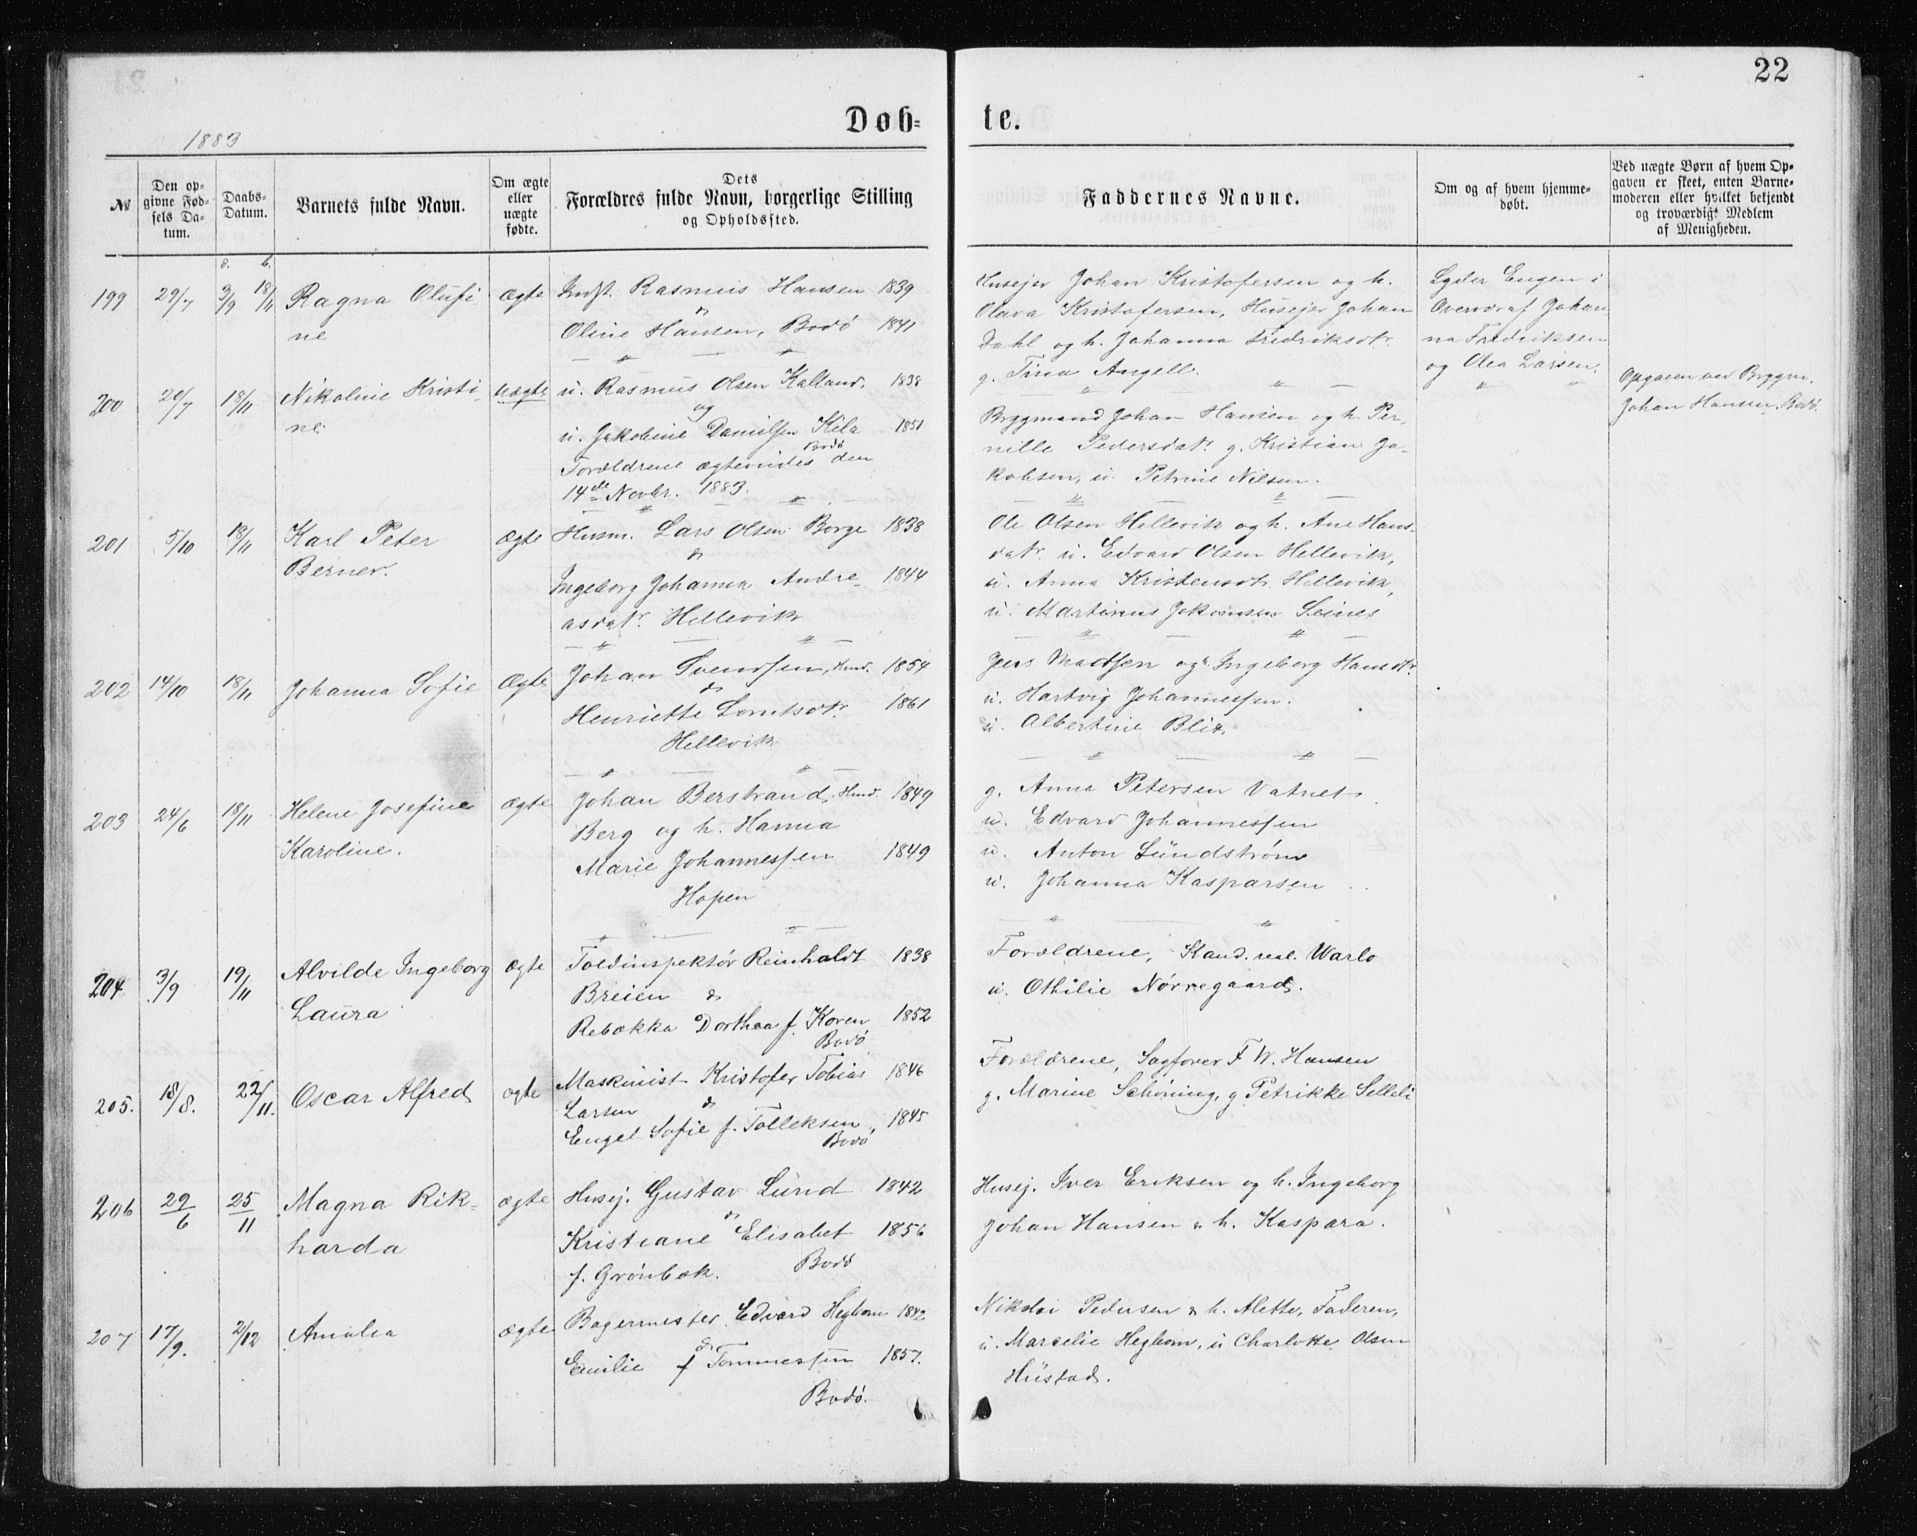 22
Døb-
te.
1883
№
Den op-
givne Fød-
sels Da-
tum.
Daabs-
Datum.
Barnets fulde Navn.
Om ægte
eller
uægte
fødte.
Dets
Forældres fulde Navn, borgerlige Stilling
og Opholdssted.
Faddernes Navne.
Om og af hvem hjemme-
døbt.
Ved uægte Børn af hvem Op-
gaven er skeet, enten Barne-
moderen eller hvilket bekjendt
og troværdigt Medlem
af Menigheden.
199 29/7 3/9 18/11 Ragna Olufi
ne
ægte
Indst. Rasmus Hansen 1839
&
Oline Hansen, Bodö 1841
Husejer Johan Kristofersen og h.
Olava Kristofersen, Husejer Johan
Dahl og h. Johanna Fredriksdtr.
g. Tina Angell.
Engen i
Overvær af Johan
na Fredriksen
og Olea Larsen.
200 20/7 18/11 Nikoline Kristi-
ne.
uægte
u. Rasmus Olsen Kalland. 1838
og
u. Jakobine Danielsen Kila 1851
Bodö
Forældrene ægteviedes den
14de Novbr. 1883.
Bryggmand Johan Hansen og h. Per-
nille Pedersdatr. g. Kristian Ja-
kobsen, u. Petrine Nilsen.
Opgaven ved Bryggm.
Johan Hansen, Bodö.
201 5/10 18/11 Karl Peter
Berner.
ægte
Husm. Lars Olsen Borge 1838
&
Ingeborg Johanna Andre- 1844
asdatr. Hellevik
Ole Olsen Hellevik og h. Ane Hans-
datr. u. Edvard Olsen Hellevik,
u. Anna Kristensdtr. Hellevik,
u. Martinus Jakobsen Seines
202 14/10 18/11 Johanna Sofie
Ægte
Johan Svendsen, Husm. 1854
&
Henriette Lorntsdtr. 1861
Hellevik
Jens Madsen og h. Ingeborg Hansdtr.
u. Hartvig Johannessen.
u. Albertine Blix
203 24/6 18/11 Helene Josefine
Karoline.
Ægte
Johan Berstrand, Husm. 1849
Berg og h. Hanna
Marie Johannessen 1849
Hopen
g. Anna Petersen Vatnet
u. Edvard Johannessen
u. Anton Lündstrøm
u. Johanna Kasparsen
204 3/9 19/11 Alvilde Ingeborg
Laura
ægte
Toldinspektör Reinholdt 1838
Breien &
Rebekka Dorthea f. Koren 1852
Bodö
Forældrene, Kand. real. Warlo
u. Othilie Nørregaard.
205. 18/8. 22/11. Oscar Alfred
ægte
Maskinist Kristofer Tobias 1846
Larsen &
Engel Sofie f. Tolleksen, 1845
Bodö
Forældrene, Sagfører F. W. Hansen
g. Marine Schöning, g Petrikke Selleli
206 29/6 25/11 Magna Rik-
harda
ægte
Husej. Gustav Lünd 1842
&
Kristiane Elisabet 1856
f. Grönbæk. Bodö
Husej. Iver Eriksen og h. Ingeborg
Johan Hansen & h. Kaspara.
207 17/9. 2/12 Amalia
ægte
Bagermester Edvard Hegbom 1842
&
Emilie f Tommessen 1857.
Bodö.
Nikolai Pedersen & h. Alette, Faderen,
u. Marcelie Hegbom, u Charlotte Olsen
Hüstad.